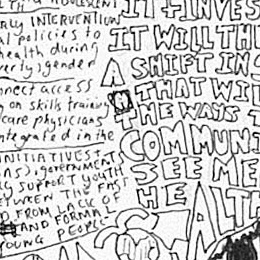 ARLY INTERVENTION
al policies to
health during
verty; gender
nnect access
g on skills training
care physicians
ntegrated in the
INITIATIVES
AS), governments
NG SUPPORT YOUTH
ETWEEN THE FAST
D FROM LACK OF
AND FORMAL
YOUNG PEOPLE
IT INVES
IT WILL TH
A SHIFT IN S
THAT WIL
THE WAYS T
COMMUNI
SEE ME
HEALTH